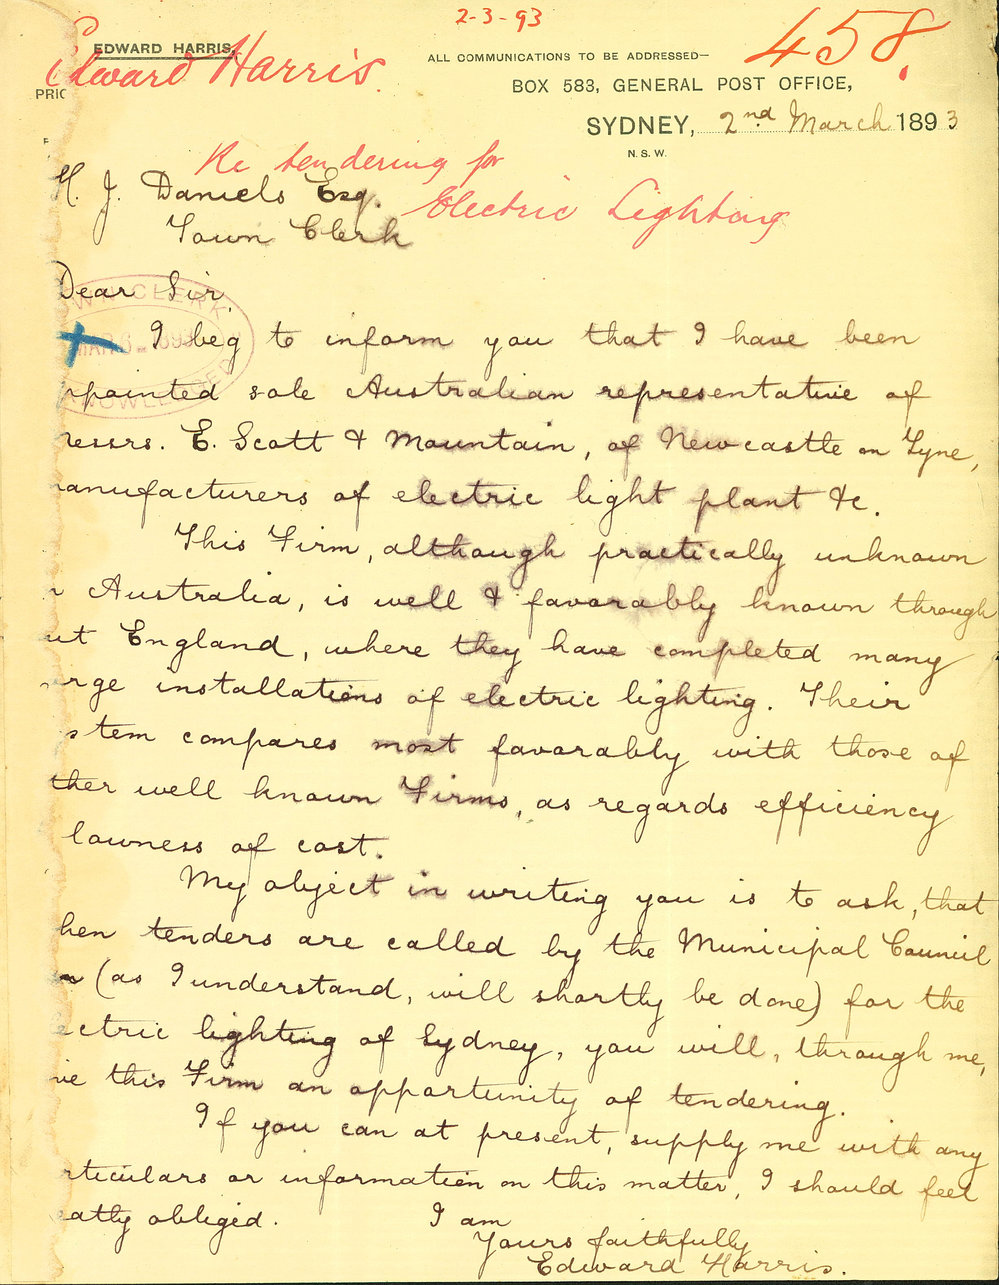 2-3-93
458.
EDWARD HARRIS,
Edward Harris.
PRIC
ALL COMMUNICATIONS TO BE ADDRESSED—
BOX 583, GENERAL POST OFFICE,
SYDNEY, 2nd March 1893
N.S.W.
Re tendering for
Electric Lighting
H. J. Daniels Esq.
Town Clerk
Dear Sir,
I beg to inform you that I have been
ppointed sole Australian representative of
essrs. E. Scott & Mountain, of Newcastle on Tyne,
anufacturers of electric light plant &c.
This Firm, although practically unknown
Australia, is well & favorably known through
ut England, where they have completed many
rge installations of electric lighting. Their
stem compares most favorably with those of
ther well known Firms, as regards efficiency
lowness of cost.
My object in writing you is to ask, that
hen tenders are called by the Municipal Council
(as I understand, will shortly be done) for the
ectric lighting of Sydney, you will, through me,
ve this Firm an opportunity of tendering.
If you can at present, supply me with any
rticulars or information on this matter, I should feel
eatly obliged.
I am
Yours faithfully
Edward Harris.